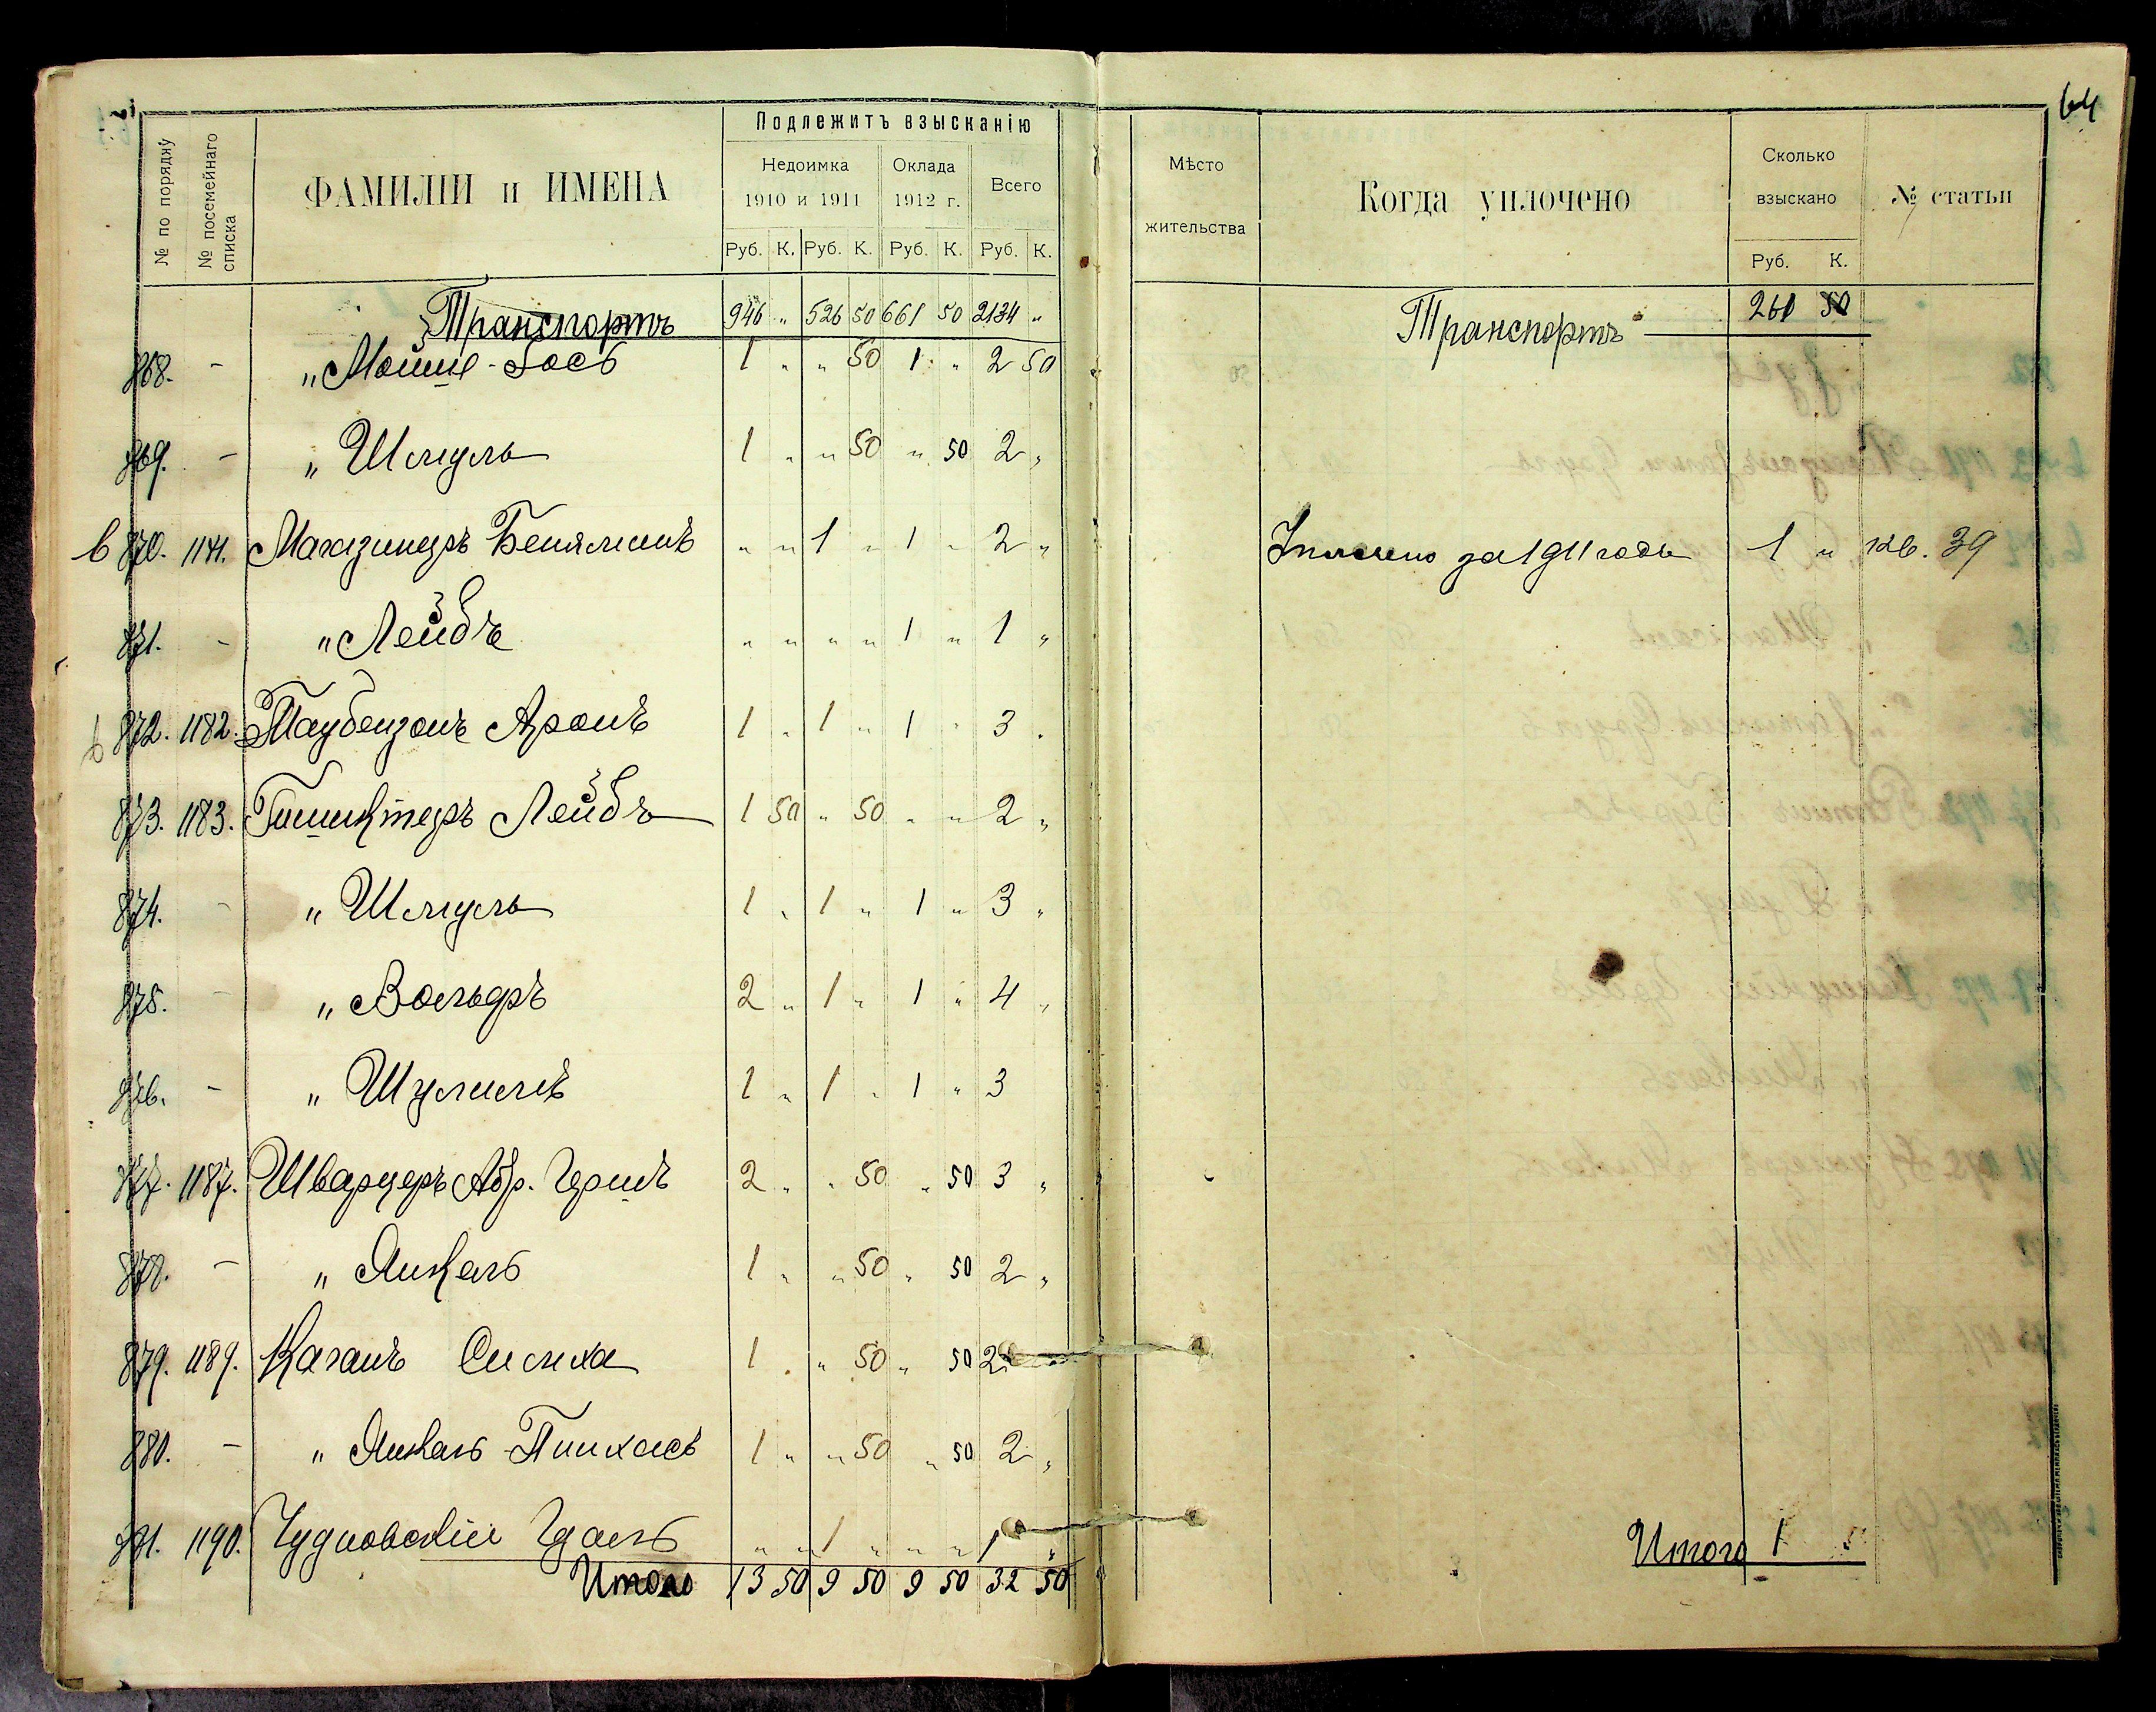 64
№ по порядку
№ посемейнаго списка
ФАМИЛІИ и ИМЕНА
Подлежитъ взысканію
Недоимка 1910 и 1911
Оклада 1912 г.
Всего
Руб. К. Руб. К. Руб. К. Руб. К.
Мѣсто жительства
Когда уплочено
Сколько взыскано
Руб. К.
№ статьи
Транспортъ 946 " 526 50 661 50 2134 "
Транспортъ 260 50
868. - " Мойше-Іось 1 " " 50 1 " 2 50
869. - " Шмуль 1 " " 50 " 50 2 "
в 870. 1171. Магазинеръ Беняминъ " " 1 " 1 " 2 "
Уплочено за 1911 годъ 1 " кв. 39
871. - " Лейбъ " " " " 1 " 1 "
в 872. 1182. Таубензонъ Аронъ 1 " 1 " 1 " 3 "
873. 1183. Лейбъ 1 50 " 50 " " 2 "
874. - " Шмуль 1 " 1 " 1 " 3 "
875. - " Вольфъ 2 " 1 " 1 " 4 "
876. - " Шулимъ 1 " 1 " 1 " 3
877. 1187. Шварцеръ Абр. Гершъ 2 " " 50 " 50 3 "
878. - " Янкель 1 " " 50 " 50 2 "
879. 1189. Каганъ Симха 1 " " 50 " 50 2
880. - " Янкель-Пинхасъ 1 " " 50 " 50 2 "
881. 1190. Чудновскій " " 1 " " " 1 "
Итого 13 50 9 50 9 50 32 50
Итого 1